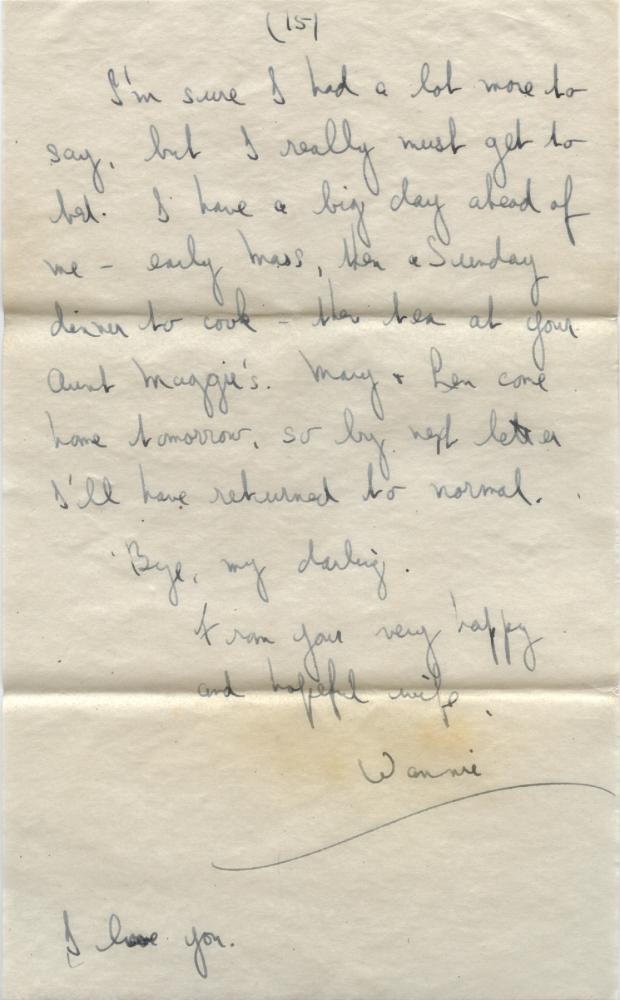 (15)
I'm sure I had a lot more to
say, but I really must get to
bed. I have a big day ahead of
me - early Mass, then a Sunday
dinner to cook - then tea at your
Aunt Maggie's. Mary + Len come
home tomorrow, so by next letter
I'll have returned to normal.
'Bye, my darling.
From your very happy
and hopeful wife,
Wannie
I love you.